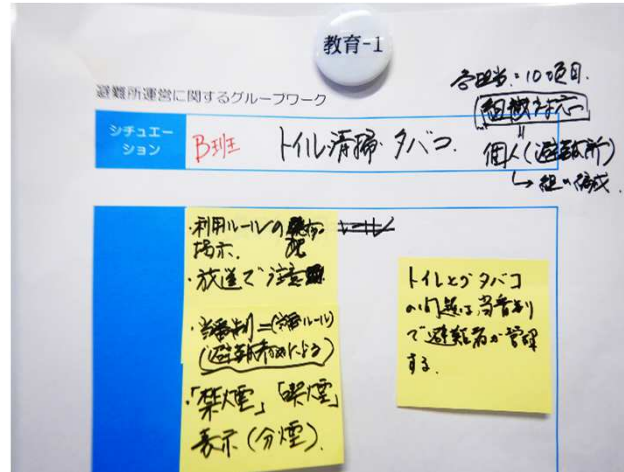 教育-1
避難所運営に関するグループワーク
10項目.
組織対応
個人(避難所)
→組の編成
シチュエー
ション
B班
トイレ清掃・タバコ.
・利用ルールの
掲示.
・放送で注意
・当番制=(当番ルール)
(避難者による)
・「禁煙」「喫煙」
表示(分煙).
トイレとタバコ
の問題は当番制
で避難者が管理
する.